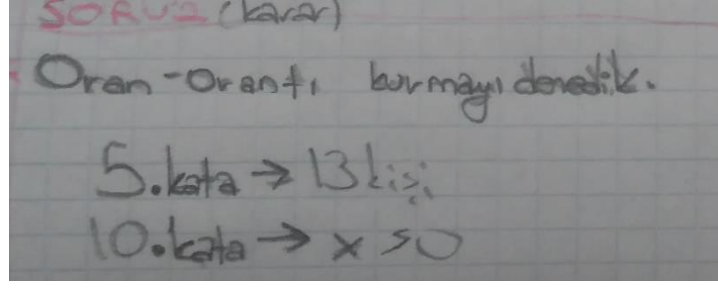 SORU2 (karar)
Oran-Orantı kurmayı denedik.
5.kata → 13 kişi
10.kata → x >0